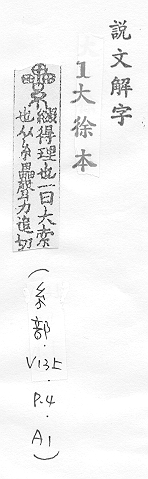 說文解字
1大徐本
纍 綴得理也一曰大索
也从糸畾聲力追切
(糸部.V13上.P.4.A1)